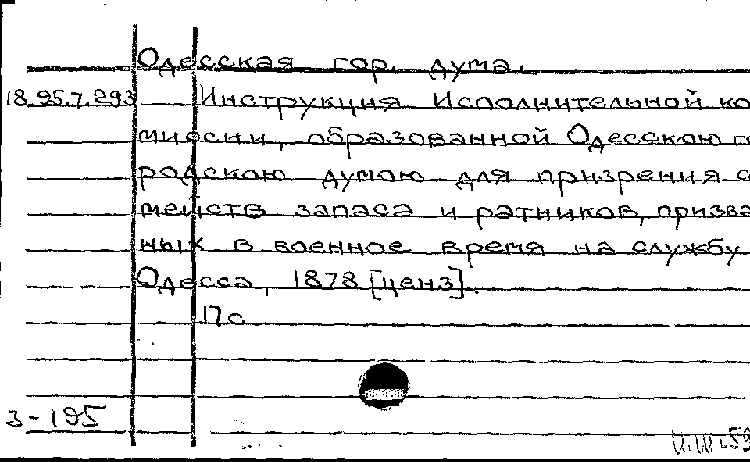 Одесская гор. дума.
18.95.7.293 Инструкция Исполнительной ко
миссии, образованной Одесскою го
родскою думою для призрения се
мейств запаса и ратников, призва
ных в военное время на службу
Одесса, 1878 [ценз].
17 с
3-195